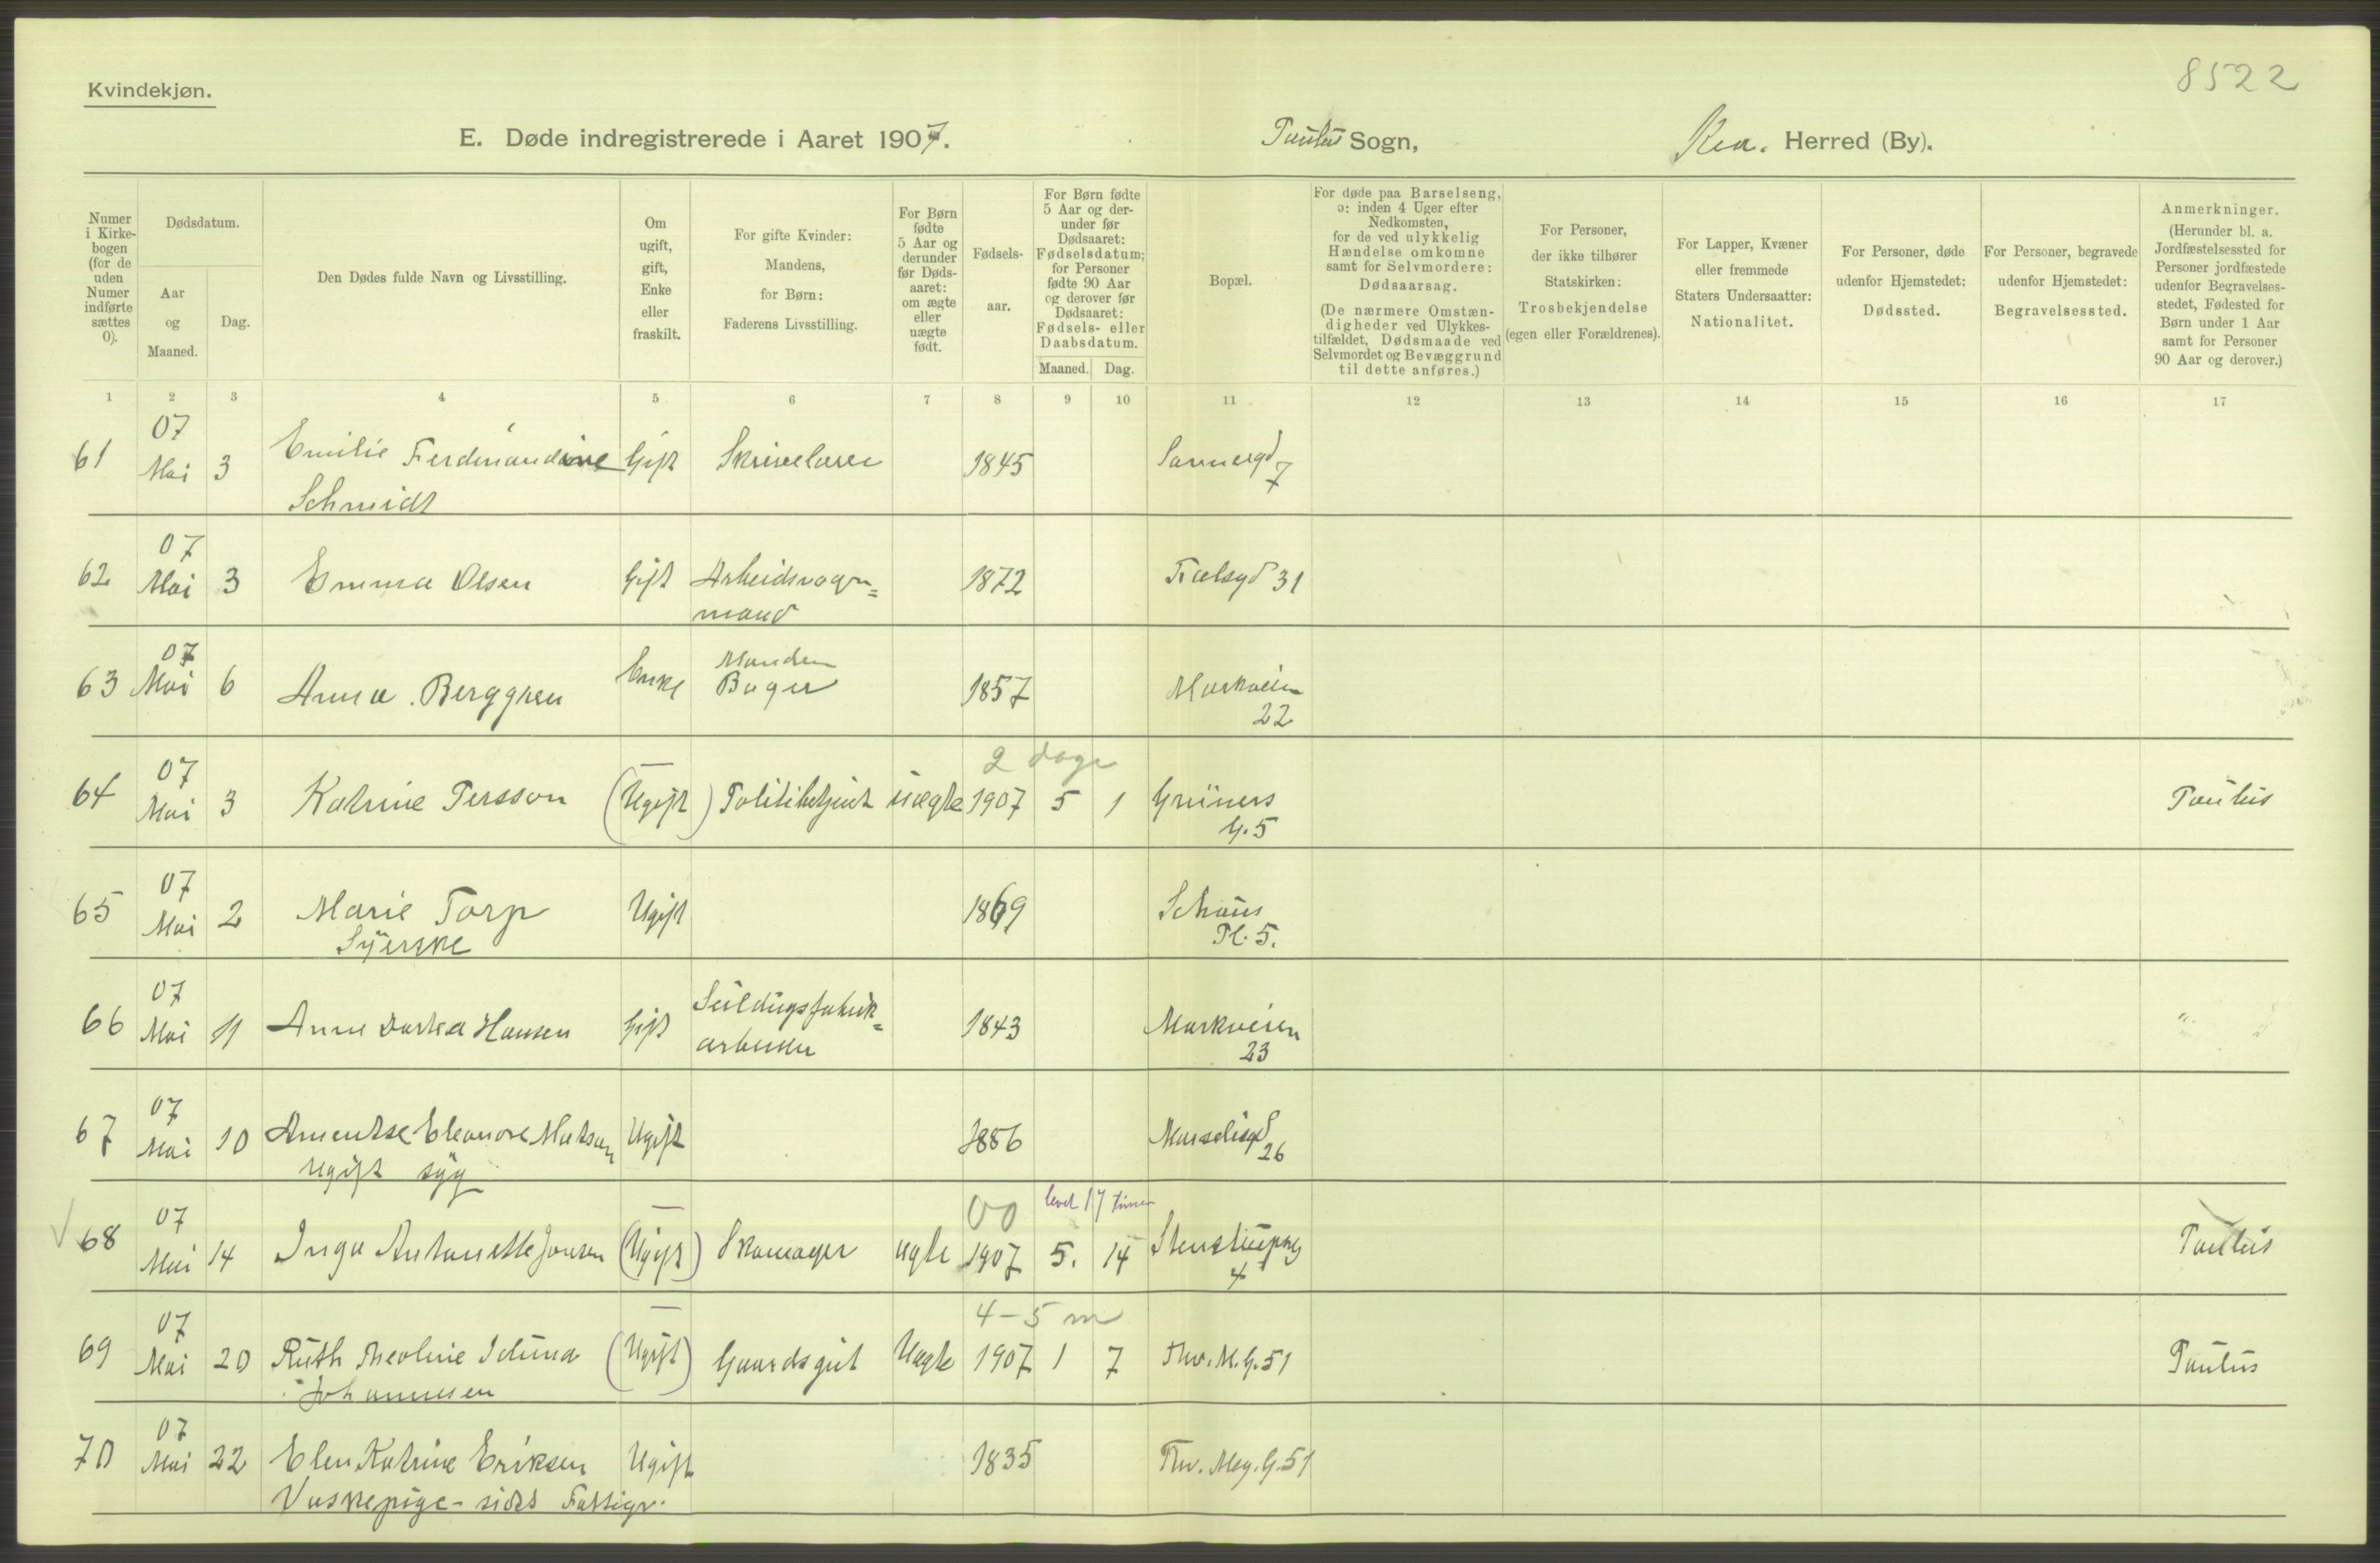 8522
Kvindekjøn.
E. Døde indregistrerede i Aaret 1907. Paulus Sogn, Kra. Herred (By).
Numer i Kirkebogen (for de uden Numer indførte sættes 0).
Dødsdatum.
Aar og Maaned.
Dag.
Den Dødes fulde Navn og Livsstilling.
Om ugift, gift, Enke eller fraskilt.
For gifte Kvinder: Mandens, for Børn: Faderens Livsstilling.
For Børn fødte 5 Aar og derunder før Dødsaaret: om ægte eller uægte født.
Fødselsaar.
For Børn fødte 5 Aar og derunder før Dødsaaret: Fødselsdatum; for Personer fødte 90 Aar og derover før Dødsaaret: Fødsels- eller Daabsdatum.
Maaned. Dag.
Bopæl.
For døde paa Barselseng, ɔ: inden 4 Uger efter Nedkomsten, for de ved ulykkelig Hændelse omkomne samt for Selvmordere: Dødsaarsag.
(De nærmere Omstændigheder ved Ulykkestilfældet, Dødsmaade ved Selvmordet og Bevæggrund til dette anføres.)
For Personer, der ikke tilhører Statskirken: Trosbekjendelse (egen eller Forældrenes).
For Lapper, Kvæner eller fremmede Staters Undersaatter: Nationalitet.
For Personer, døde udenfor Hjemstedet: Dødssted.
For Personer, begravede udenfor Hjemstedet: Begravelsessted.
Anmerkninger. (Herunder bl. a. Jordfæstelsessted for Personer jordfæstede udenfor Begravelsesstedet, Fødested for Børn under 1 Aar samt for Personer 90 Aar og derover.)
1 2 3 4 5 6 7 8 9 10 11 12 13 14 15 16 17
61 07 Mai 3 Emilie Ferdinandine Gift 1845 Sannergd 7
Schmidt
62 07 Mai 3 Emma Olsen Gift Arbeidsvogn= 1872 31
mand
63 07 Mai 6 Anna Berggren Enke Manden Bager 1857 Markveien
22
2 dage
64 07 Mai 3 Katrine Persson (Ugift) Politibetjent uægte 1907 5 1 Grüners Paulus
G. 5
65 07 Mai 2 Marie Torp Ugift 1869 Schous
Syerske Pl. 5.
66 07 Mai 11 Anne Dortea Hansen Gift Seildugsfabrik= 1843 Markveien
arbeider 23
67 07 Mai 10 Amentse Eleonore Matsen Ugift 1886 26
Ugift syg
00 levet 17 timer
68 07 Mai 14 Inga Antonette Jonsen (Ugift) Skomager ægte 1907 5. 14 Paulus
4
4-5 m
69 07 Mai 20 Ruth Theoline (Ugift) Gaardsgut Uægte 1907 1 7 Thv. M. G. 51 Paulus
Johannesen
70 07 Mai 22 Elen Katrine Eriksen Ugift 1835 Thv. Mey. G. 51
Vaskepige - sidst Fattigv.